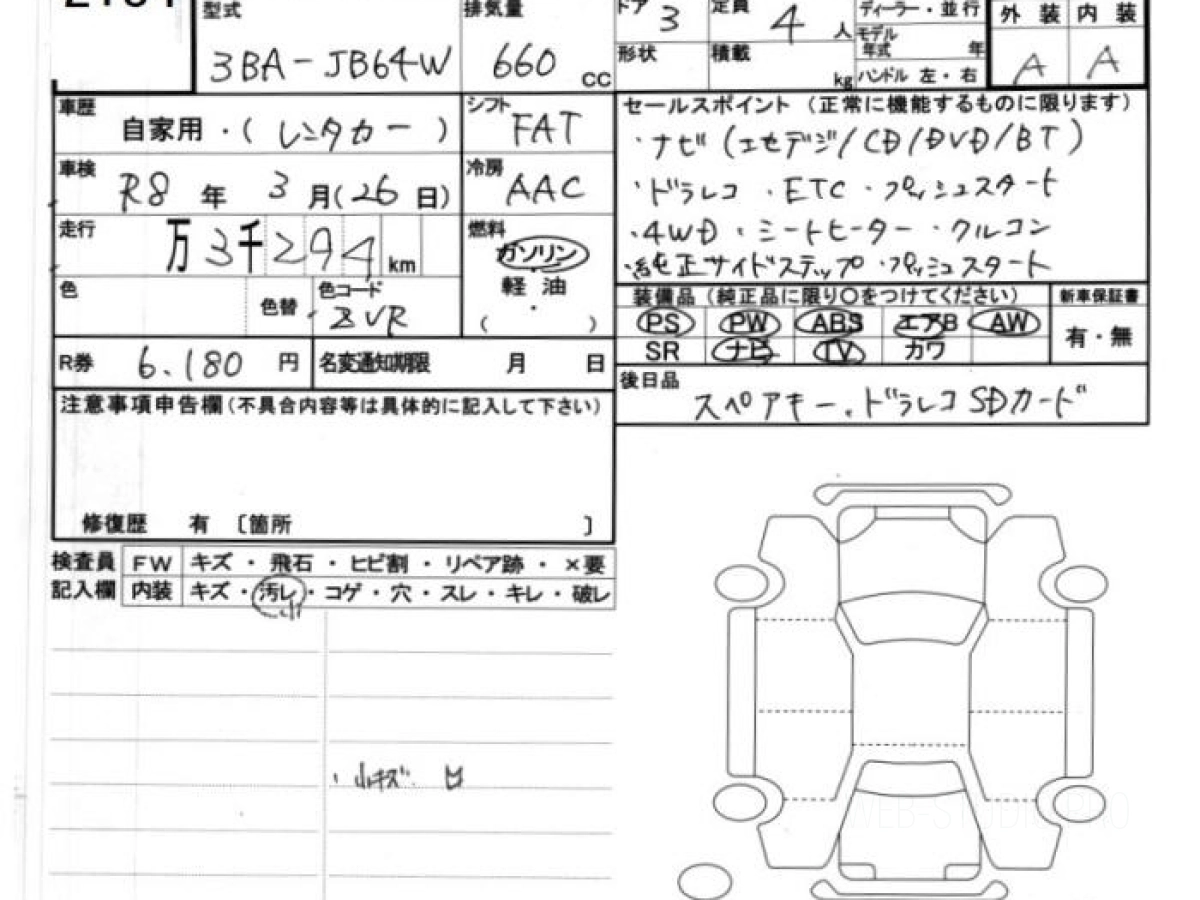 型式 排気量 ドア 3 定員 4 人 ディーラー・並行 外装 内装
3BA-JB64W 660 cc 形状 積載 kg モデル年式 年 ハンドル 左・右 A A
車歴 自家用・(レンタカー) シフト FAT セールスポイント (正常に機能するものに限ります)
・ナビ(エセデジ/CD/DVD/BT)
車検 R8 年 3 月(26日) 冷房 AAC ・ドラレコ ・ETC ・プッシュスタート
走行 万 3千294 km 燃料 ガソリン ・4WD ・シートヒーター ・クルコン
軽油 ・純正サイドステップ ・プッシュスタート
色 色替 色コード ZVR ( ) 装備品 (純正品に限り○をつけてください) 新車保証書
PS PW ABS エアB AW 有・無
R券 6.180 円 名変通知期限 月 日 SR ナビ TV カワ
後日品 スペアキー、ドラレコSDカード
注意事項申告欄(不具合内容等は具体的に記入して下さい)
修復歴 有 〔箇所 〕
検査員 FW キズ ・ 飛石 ・ ヒビ割 ・ リペア跡 ・ ×要
記入欄 内装 キズ・汚レ・コゲ・穴・スレ・キレ・破レ
小
・小キズ
WEB-STUDIO.PRO